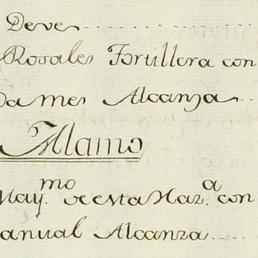 Deve
Rosales Tortillera con
Da mes Alcanza
Alamo
May.mo de esta Haz.a con
anual Alcanza